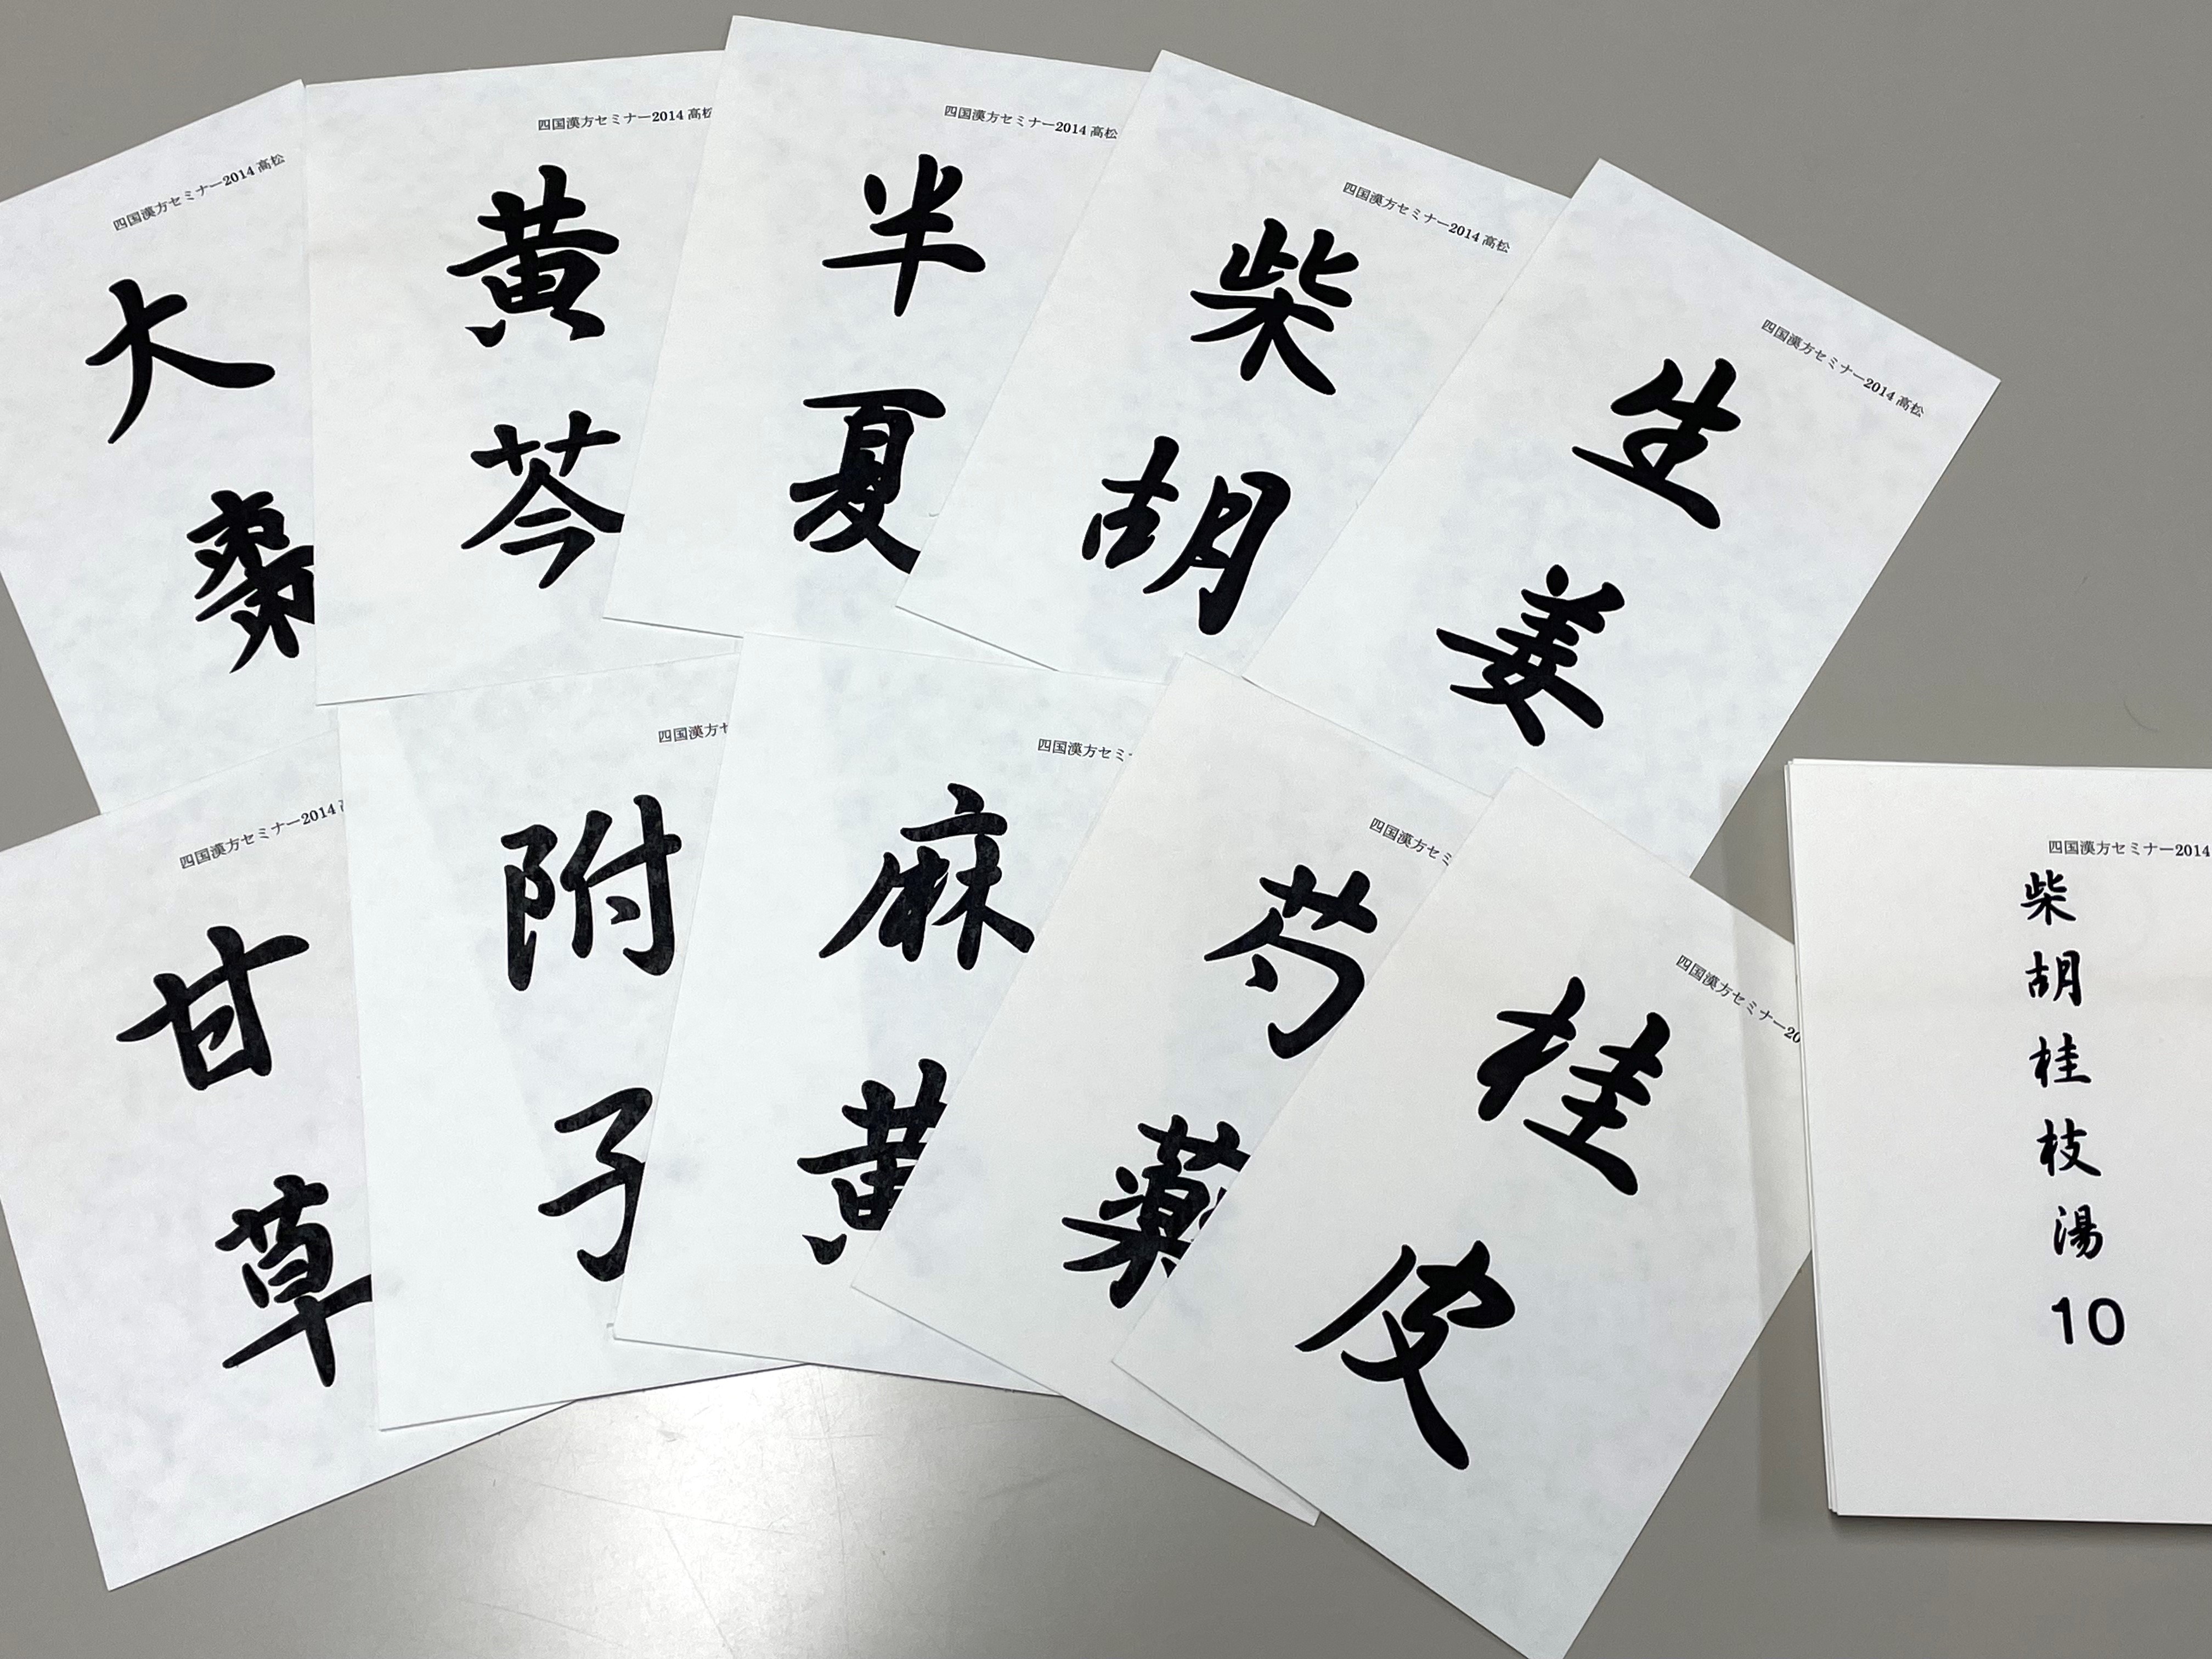 四国漢方セミナー2014 高松
大棗
四国漢方セミナー2014 高松
黄芩
四国漢方セミナー2014 高松
半夏
四国漢方セミナー2014 高松
柴胡
四国漢方セミナー2014 高松
生姜
四国漢方セミナー2014
甘草
四国漢方セ
附子
四国漢方セミ
麻黄
四国漢方セミ
芍薬
四国漢方セミナー20
桂皮
四国漢方セミナー2014
柴胡桂枝湯10